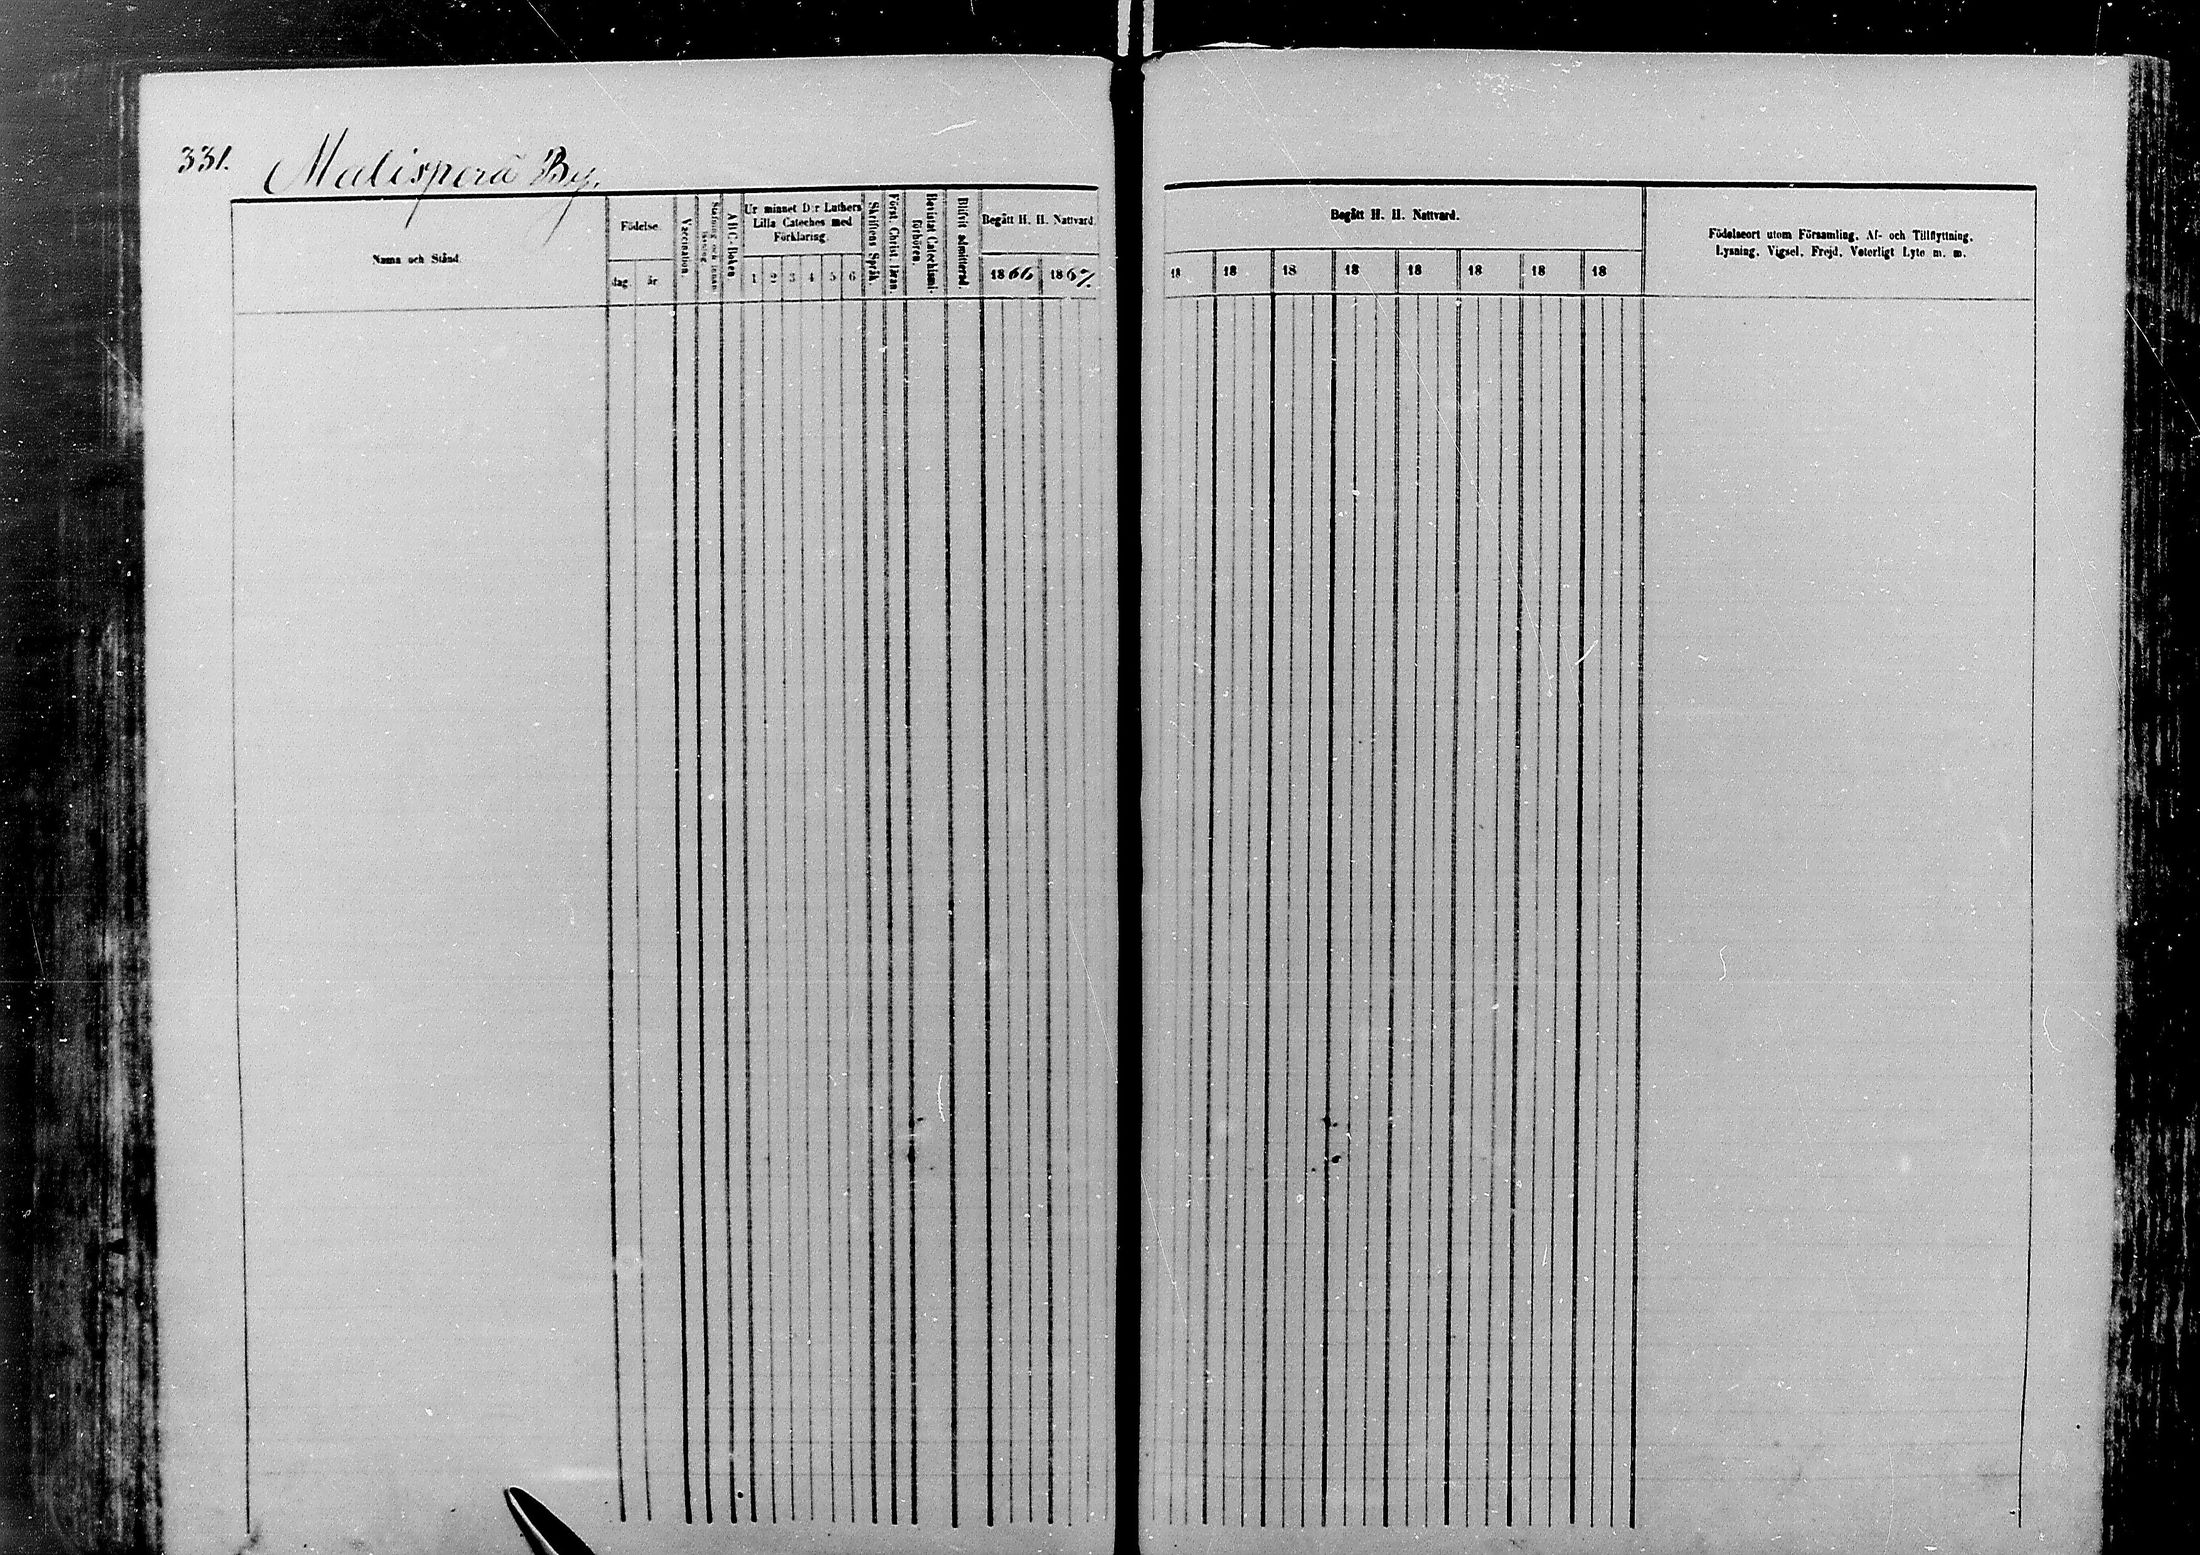 331. Malisperä By.
Namn och Stånd.
Födelse.
dag. år
Vaccination.
A B C-Boken.
Ur minnet D:r Luthers
Lilla Cateches med
Förklaring.
1 2 3 4 5 6
Skriftens Språk.
Först. Christ. Läran.
Bevistat Catechismi-
förhören.
Blifvit admitterad.
Begått H. H. Nattvard.
1866 1867.
Begått H. H. Nattvard.
18 18 18 18 18 18 18 18
Födelseort utom Församling, Af- och Tillflyttning,
Lysning, Vigsel, Frejd, Veterligt Lyte m. m.